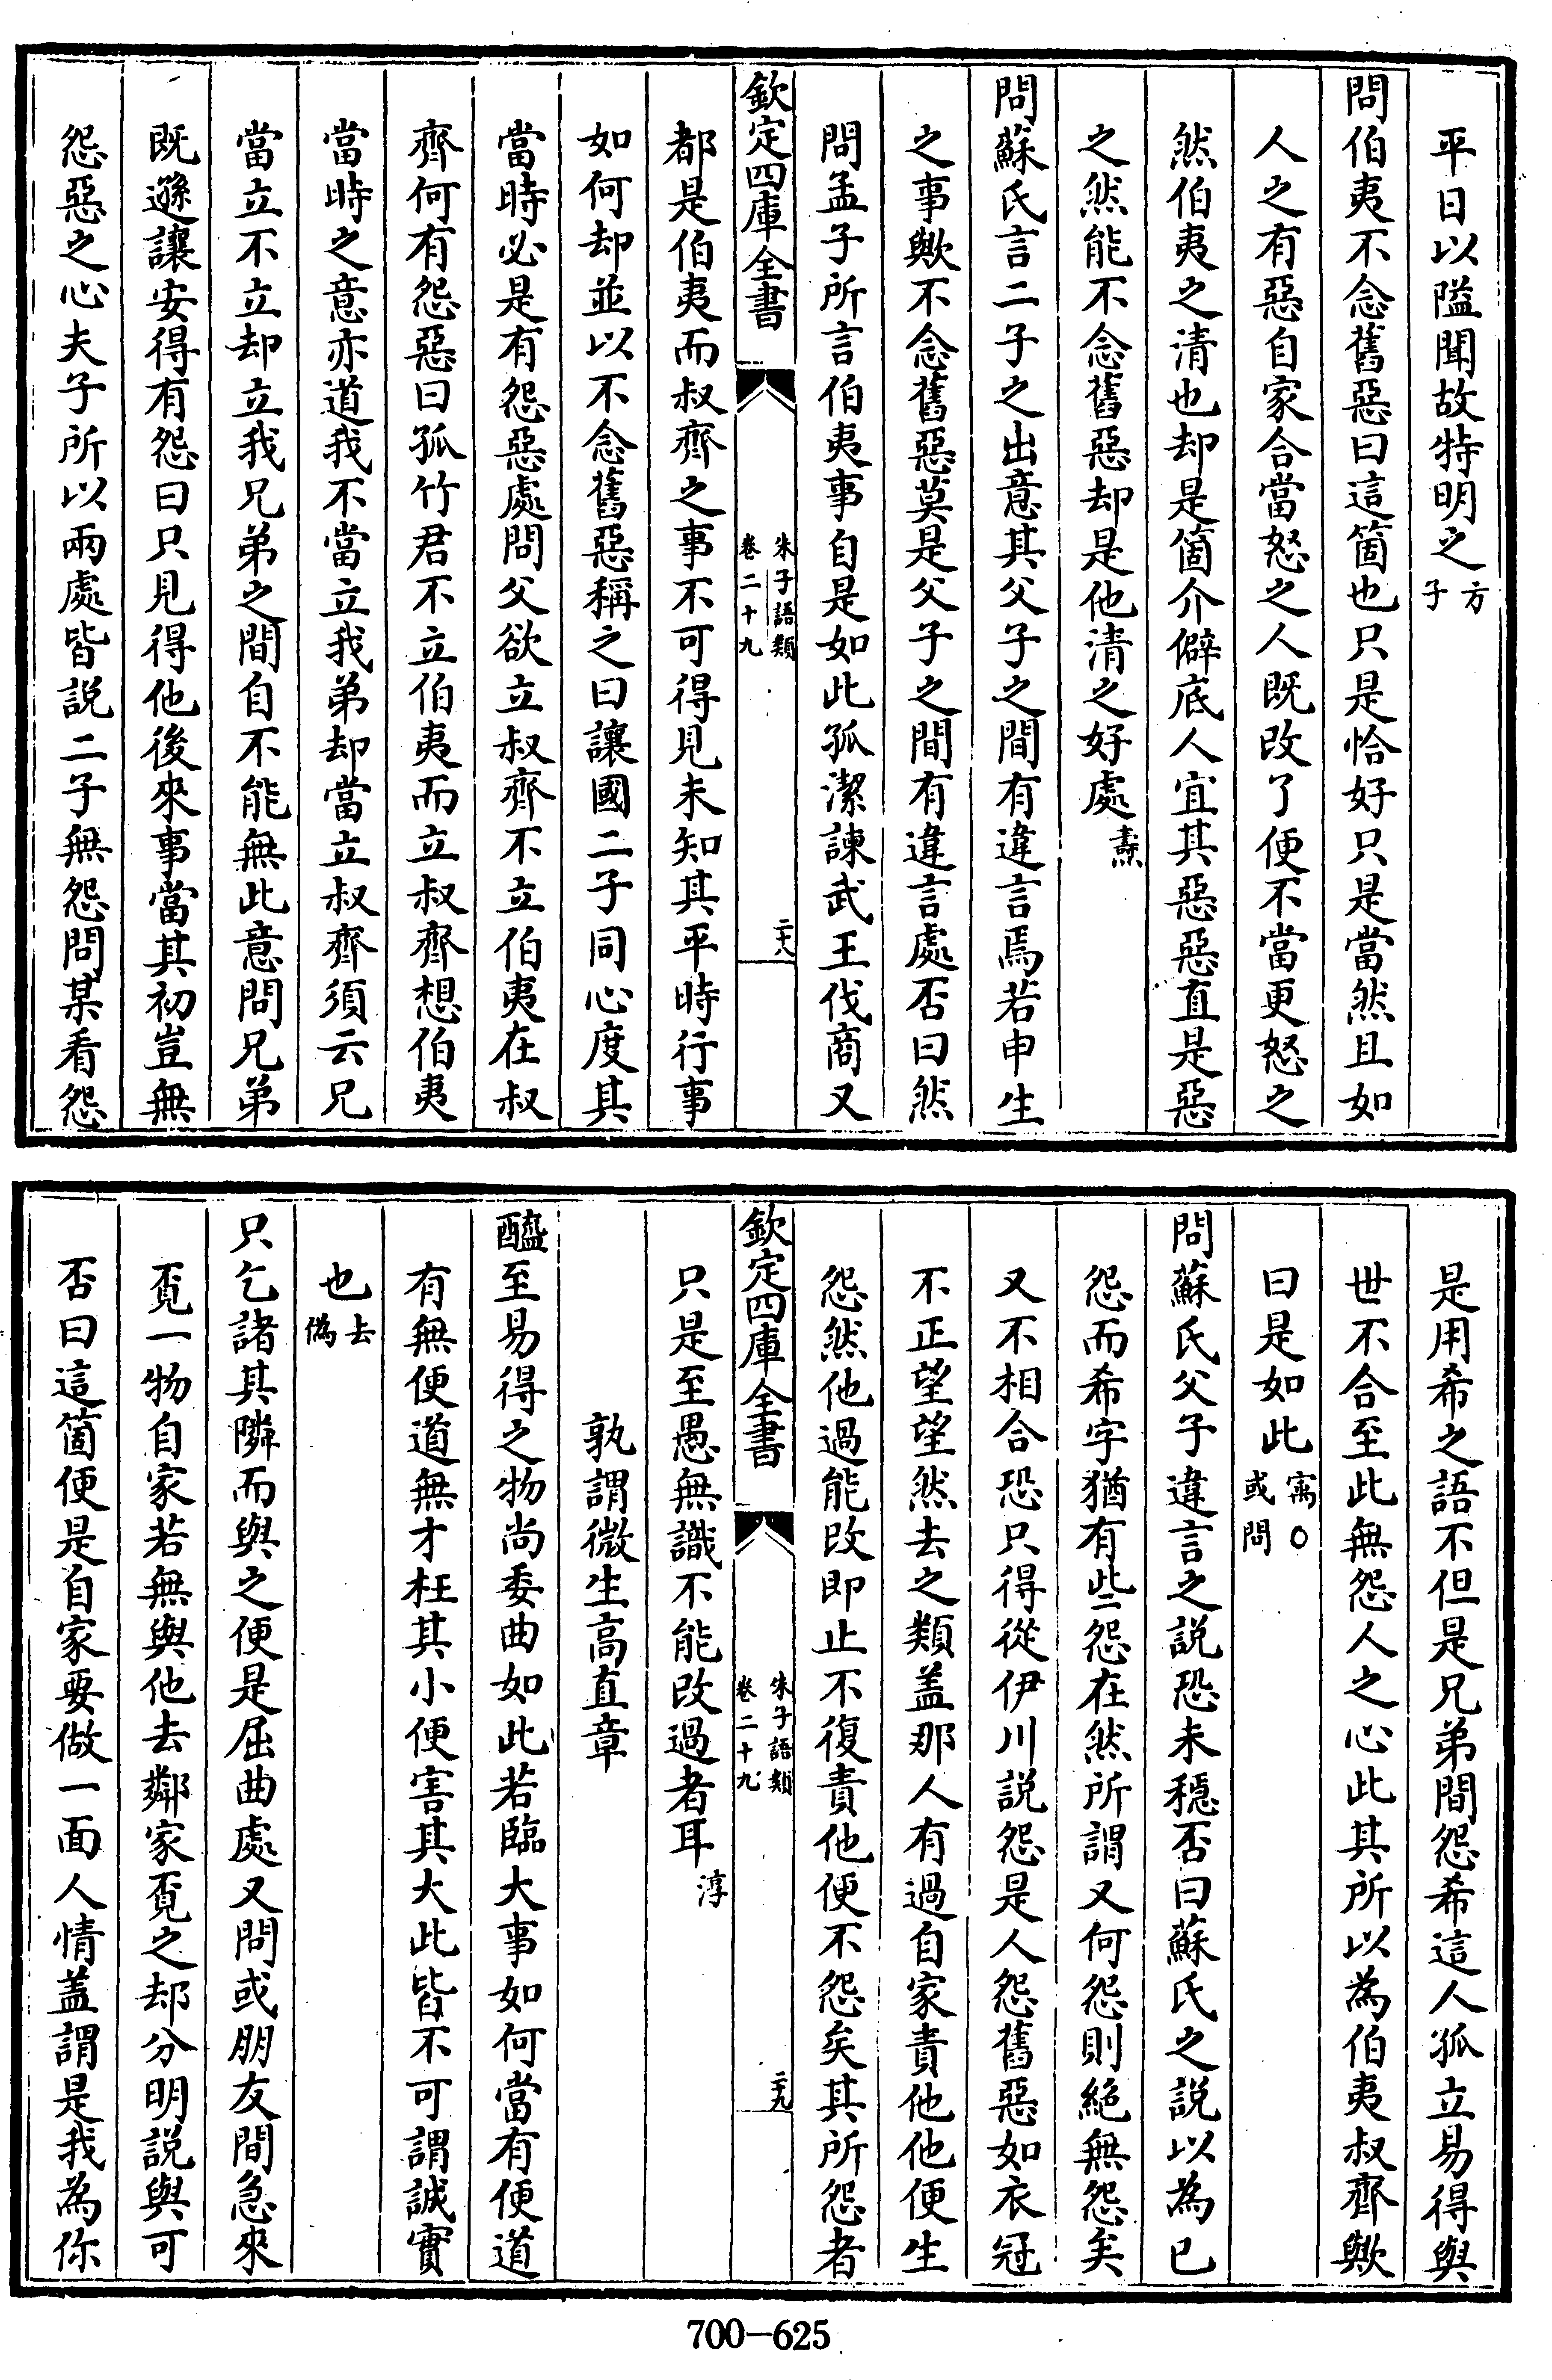 平日以隘聞故特明之方子
問伯夷不念舊惡曰這箇也只是恰好只是當然且如
人之有惡自家合當怒之人既改了便不當更怒之
然伯夷之清也却是箇介僻底人宜其惡惡直是惡
之然能不念舊惡却是他清之好處燾
問蘇氏言二子之出意其父子之間有違言焉若申生
之事歟不念舊惡莫是父子之間有違言處否曰然
問孟子所言伯夷事自是如此孤潔諫武王伐商又
欽定四庫全書
朱子語類
卷二十九
二十八
都是伯夷而叔齊之事不可得見未知其平時行事
如何却並以不念舊惡稱之曰讓國二子同心度其
當時必是有怨惡處問父欲立叔齊不立伯夷在叔
齊何有怨惡曰孤竹君不立伯夷而立叔齊想伯夷
當時之意亦道我不當立我弟却當立叔齊須云兄
當立不立却立我兄弟之間自不能無此意問兄弟
既遜讓安得有怨曰只見得他後來事當其初豈無
怨惡之心夫子所以兩處皆説二子無怨問某看怨
是用希之語不但是兄弟間怨希這人孤立易得與
世不合至此無怨人之心此其所以為伯夷叔齊歟
曰是如此㝢○或問
問蘇氏父子違言之説恐未穏否曰蘇氏之説以為已
怨而希字猶有些怨在然所謂又何怨則絕無怨矣
又不相合恐只得從伊川説怨是人怨舊惡如衣冠
不正望望然去之類盖那人有過自家責他他便生
怨然他過能改即止不復責他便不怨矣其所怨者
欽定四庫全書
朱子語類
卷二十九
二十九
只是至愚無識不能改過者耳淳
孰謂微生高直章
醯至易得之物尚委曲如此若臨大事如何當有便道
有無便道無才枉其小便害其大此皆不可謂誠實
也去偽
只乞諸其隣而與之便是屈曲處又問或朋友間急來
覔一物自家若無與他去鄰家覔之却分明説與可
否曰這箇便是自家要做一面人情盖謂是我為你
700-625